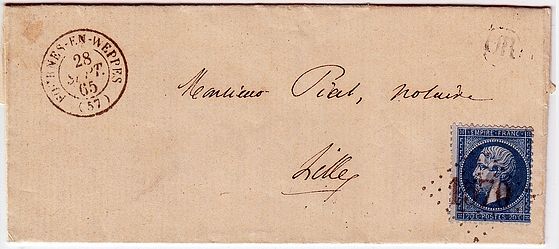 FOURNES-EN-WEPPES
28
SEPT.
65
(57)
OR
Monsieur Piat, notaire
Lille
EMPIRE FRANC
20 C POSTES 20 C